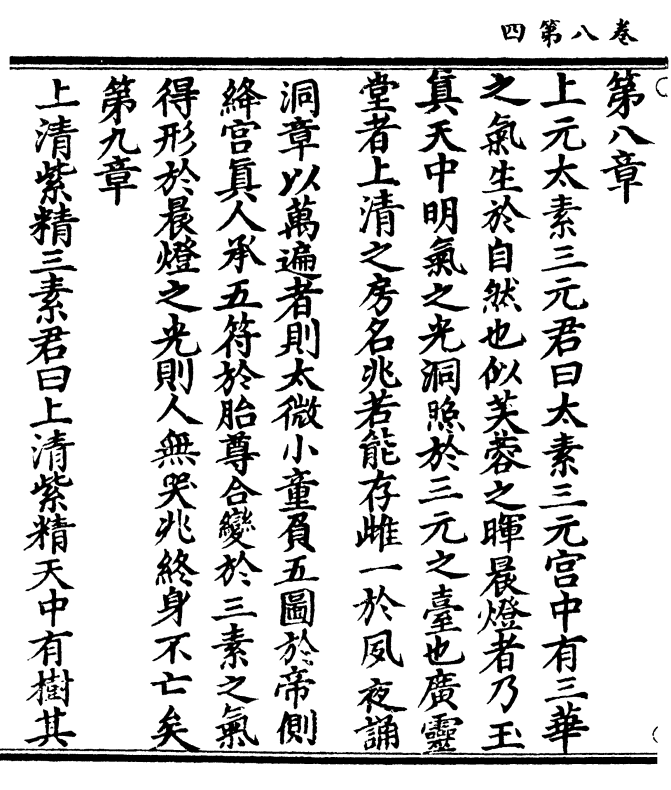 卷八第四
第八章
上元太素三元君曰太素三元宮中有三華
之氣生於自然也似芙蓉之暉晨燈者乃玉
真天中明氣之光洞照於三元之臺也廣靈
堂者上清之房名兆若能存雌一於夙夜誦
洞章以萬遍者則太微小童負五圖於帝側
絳宮真人承五符於胎尊合變於三素之氣
得形於晨燈之光則人無哭兆終身不亡矣
第九章
上清紫精三素君曰上清紫精天中有樹其